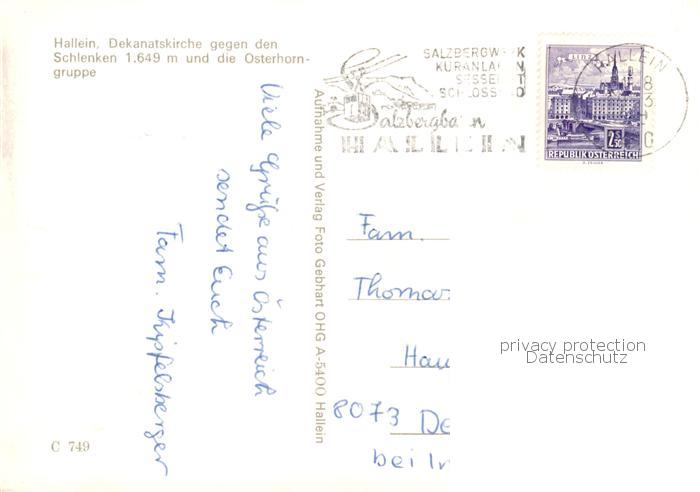 Hallein, Dekanatskirche gegen den
Schlenken 1.649 m und die Osterhorn-
gruppe
SALZBERGW K
KURANLA N
SESSE T
SCHLOSS D
Salzbergbahn
HALLEIN
HALLEIN
LINZ
2 S 50
REPUBLIK ÖSTERREICH
Viele Grüße aus Österreich
sendet Euch
Fam. Kipfelsberger
Aufnahme und Verlag Foto Gebhart OHG A-5400 Hallein
Fam.
Thomas
Hau
8073 De
bei In
privacy protection
Datenschutz
C 749